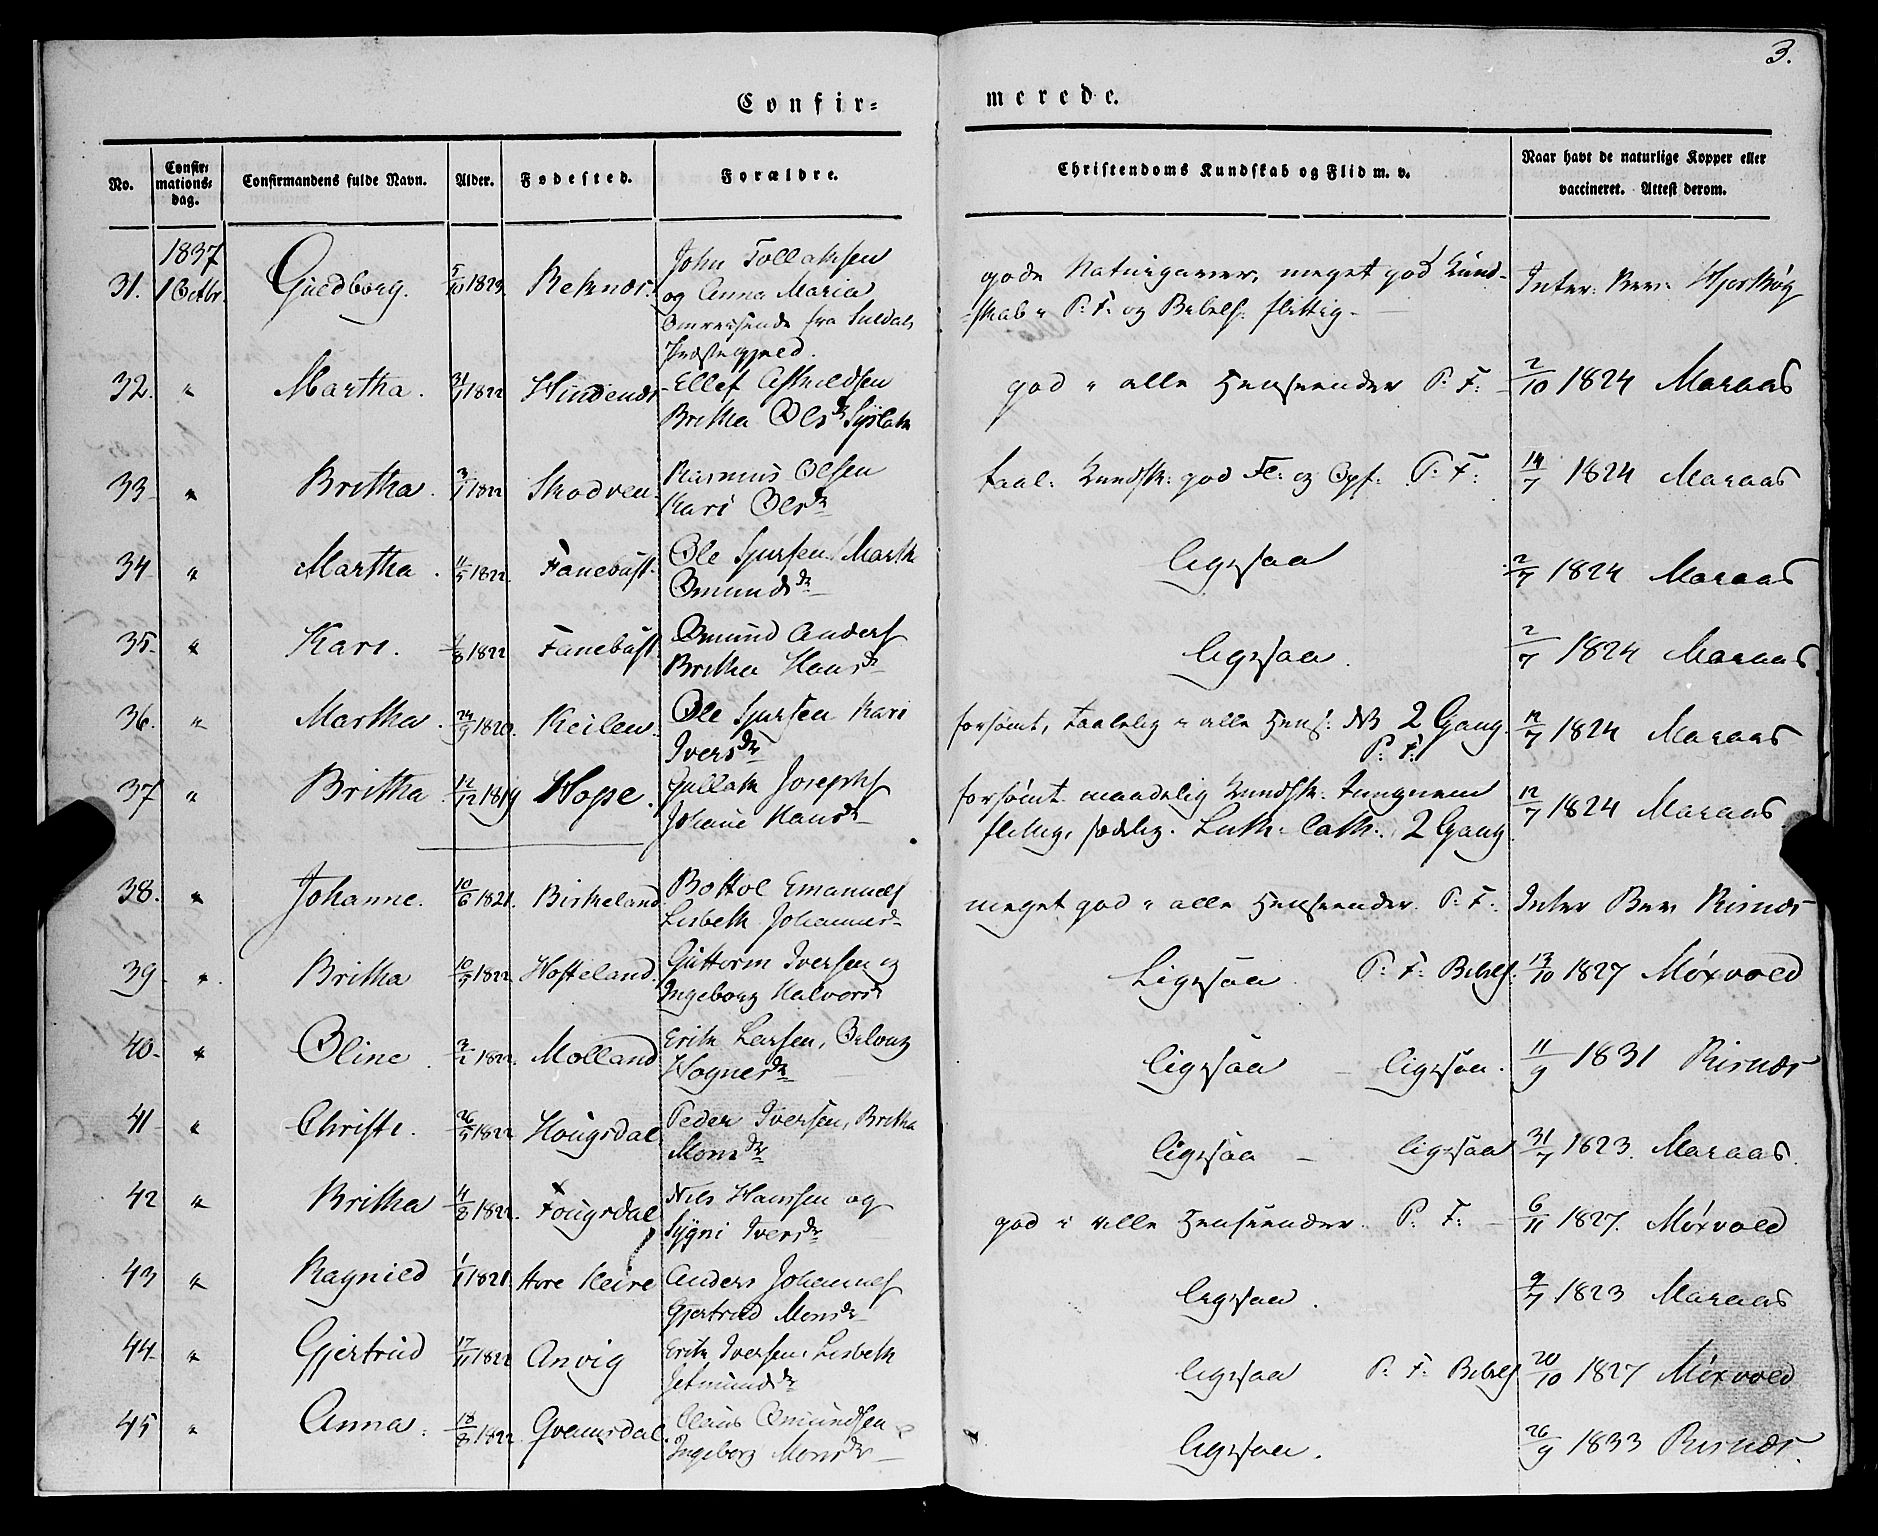 3.
Confir-
merede.
No.
Confir-
mations-
dag.
Confirmandens fulde Navn.
Alder.
Fødested.
Forældre.
Christendoms Kundskab og Flid m. v.
Naar havt de naturlige Kopper eller
vaccineret. Attest derom.
1837
31. 1 Octbr. Guldborg. 5/10 1823 Reknes. John Tollaksen
og Anna Maria
Omreisende fra Suldals
Præstegjeld.
gode Naturgaver, meget god Kund-
skab i P: F: og Bibels: flittig -
Inter: Rev:
32. " Martha. 31/1 1822 Hindenæs Ellef
Britha Olsdr
god i alle Henseender P: F: 2/10 1824 Maraas
33 " Britha. 3/1 1822 Skodven Rasmus Olsen
Kari Olsdr
taal: Kundsk: god Fl: og Opf: P: F: 14/7 1824 Maraas
34 " Martha. 11/5 1822. Fanebust. Ole Sjursen Marth
Omundsdr
ligesaa 2/7 1824 Maraas
35. " Kari. /8 1822 Fanebust. Omund Anders
Britha Hansdr
ligesaa. 2/7 1824 Maraas
36. " Martha. 24/9 1820. Keilen. Ole Sjursen Kari
Iversdr
forsømt, taalelig i alle Hens: NB 2 Gang.
P: F: 12/7 1824 Maraas
37 " Britha. 12/12 1819 Hope. Josephs
Johane Hansdr
forsømt maadelig Kundsk:
flittig, sædelig. Luth: Cath: 2 Gang 12/7 1824 Maraas
38. " Johanne. 10/6 1821. Birkeland Bottol Emanuels
Lisbeth Johannesdr
meget god i alle Henseender. P: F: Inter Rev Risnæs
39 " Britha 10/9 1822 Hosteland. Guttorm Iversen og
Ingeborg Halvorsdr
Ligesaa P: F: Bibels: 13/10 1827 Møxvold
40- " Oline. 3/2 1822. Molland Erik Larsen,
Hognesdr
ligesaa - ligesaa. 11/9 1831 Risnæs
41 " Christi. 26/5 1822 Hougsdal. Peder Iversen, Britha
Monsdr
ligesaa - ligesaa 31/7 1823. Maraas.
42 " Britha 11/8 1822. Hougsdal Nils Hanssen og
Sygni Iversdr
god i alle Henseender. P: F: - 6/11 1827. Møxvold
43 " Ragnild 1/1 1821. Store Keire Anders Johannes
Gjertrud Monsdr
ligesaa. 9/7 1823 Maraas
44 " Gjertrud 17/11 1822 Anvig Erik Iversen, Lisbeth
Jetmundsdr
ligesaa P: F: Bibels 20/10 1827 Møxvold
45 " Anna. 18/8 1822 Qvamsdal. Claus Omundsen
Ingeborg Monsdr
ligesaa. 26/9 1833 Risnæs.